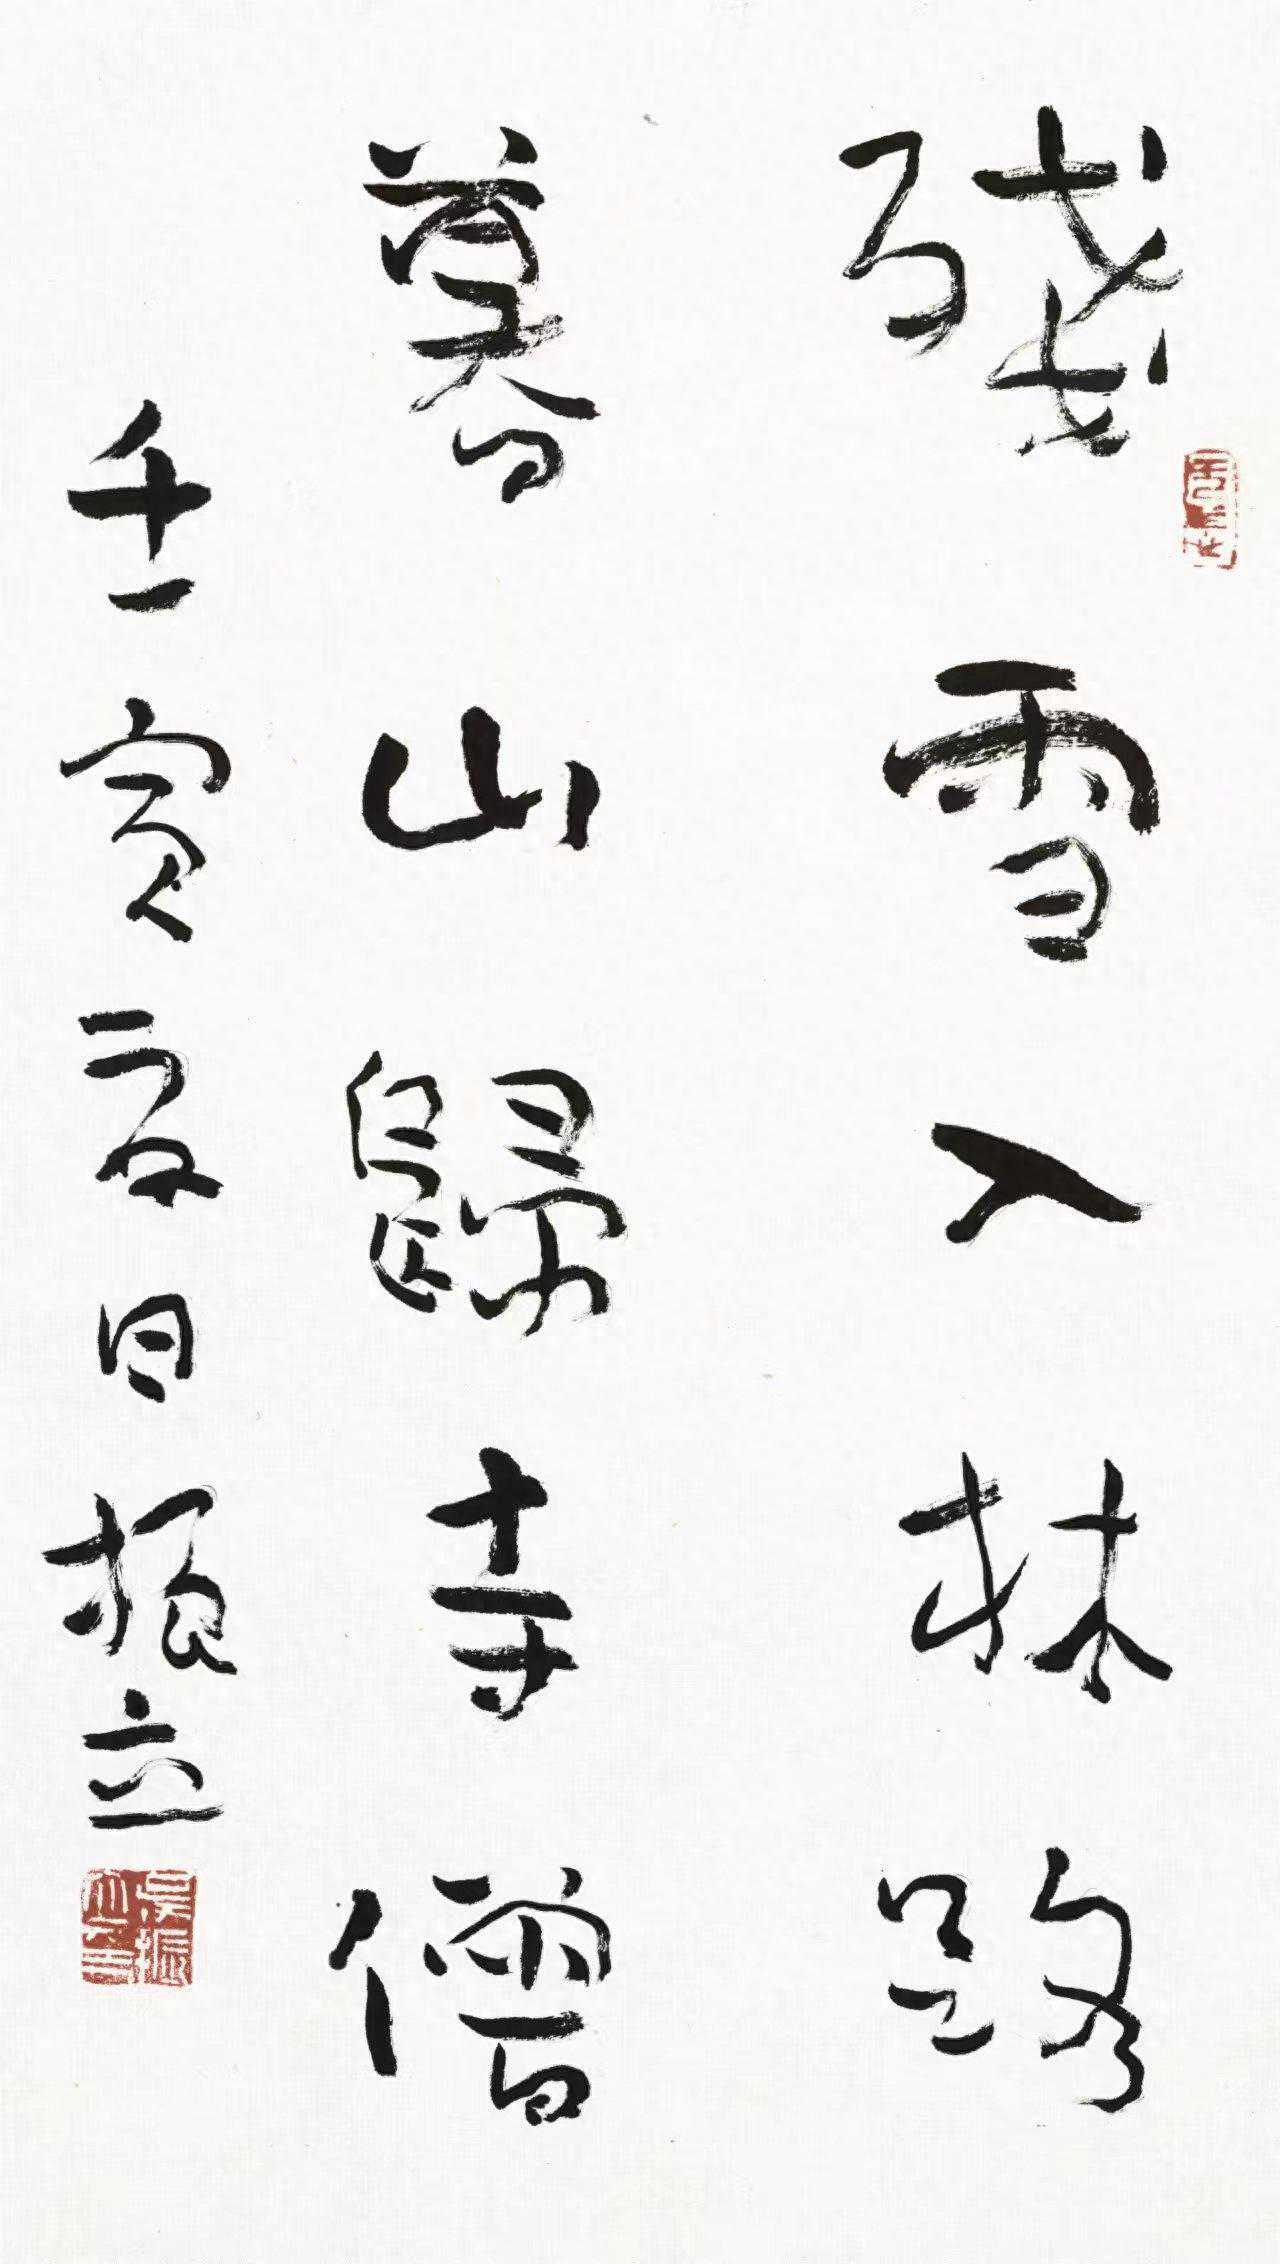 殘雪入林路
暮山歸寺僧
壬寅夏日振立
吳振立